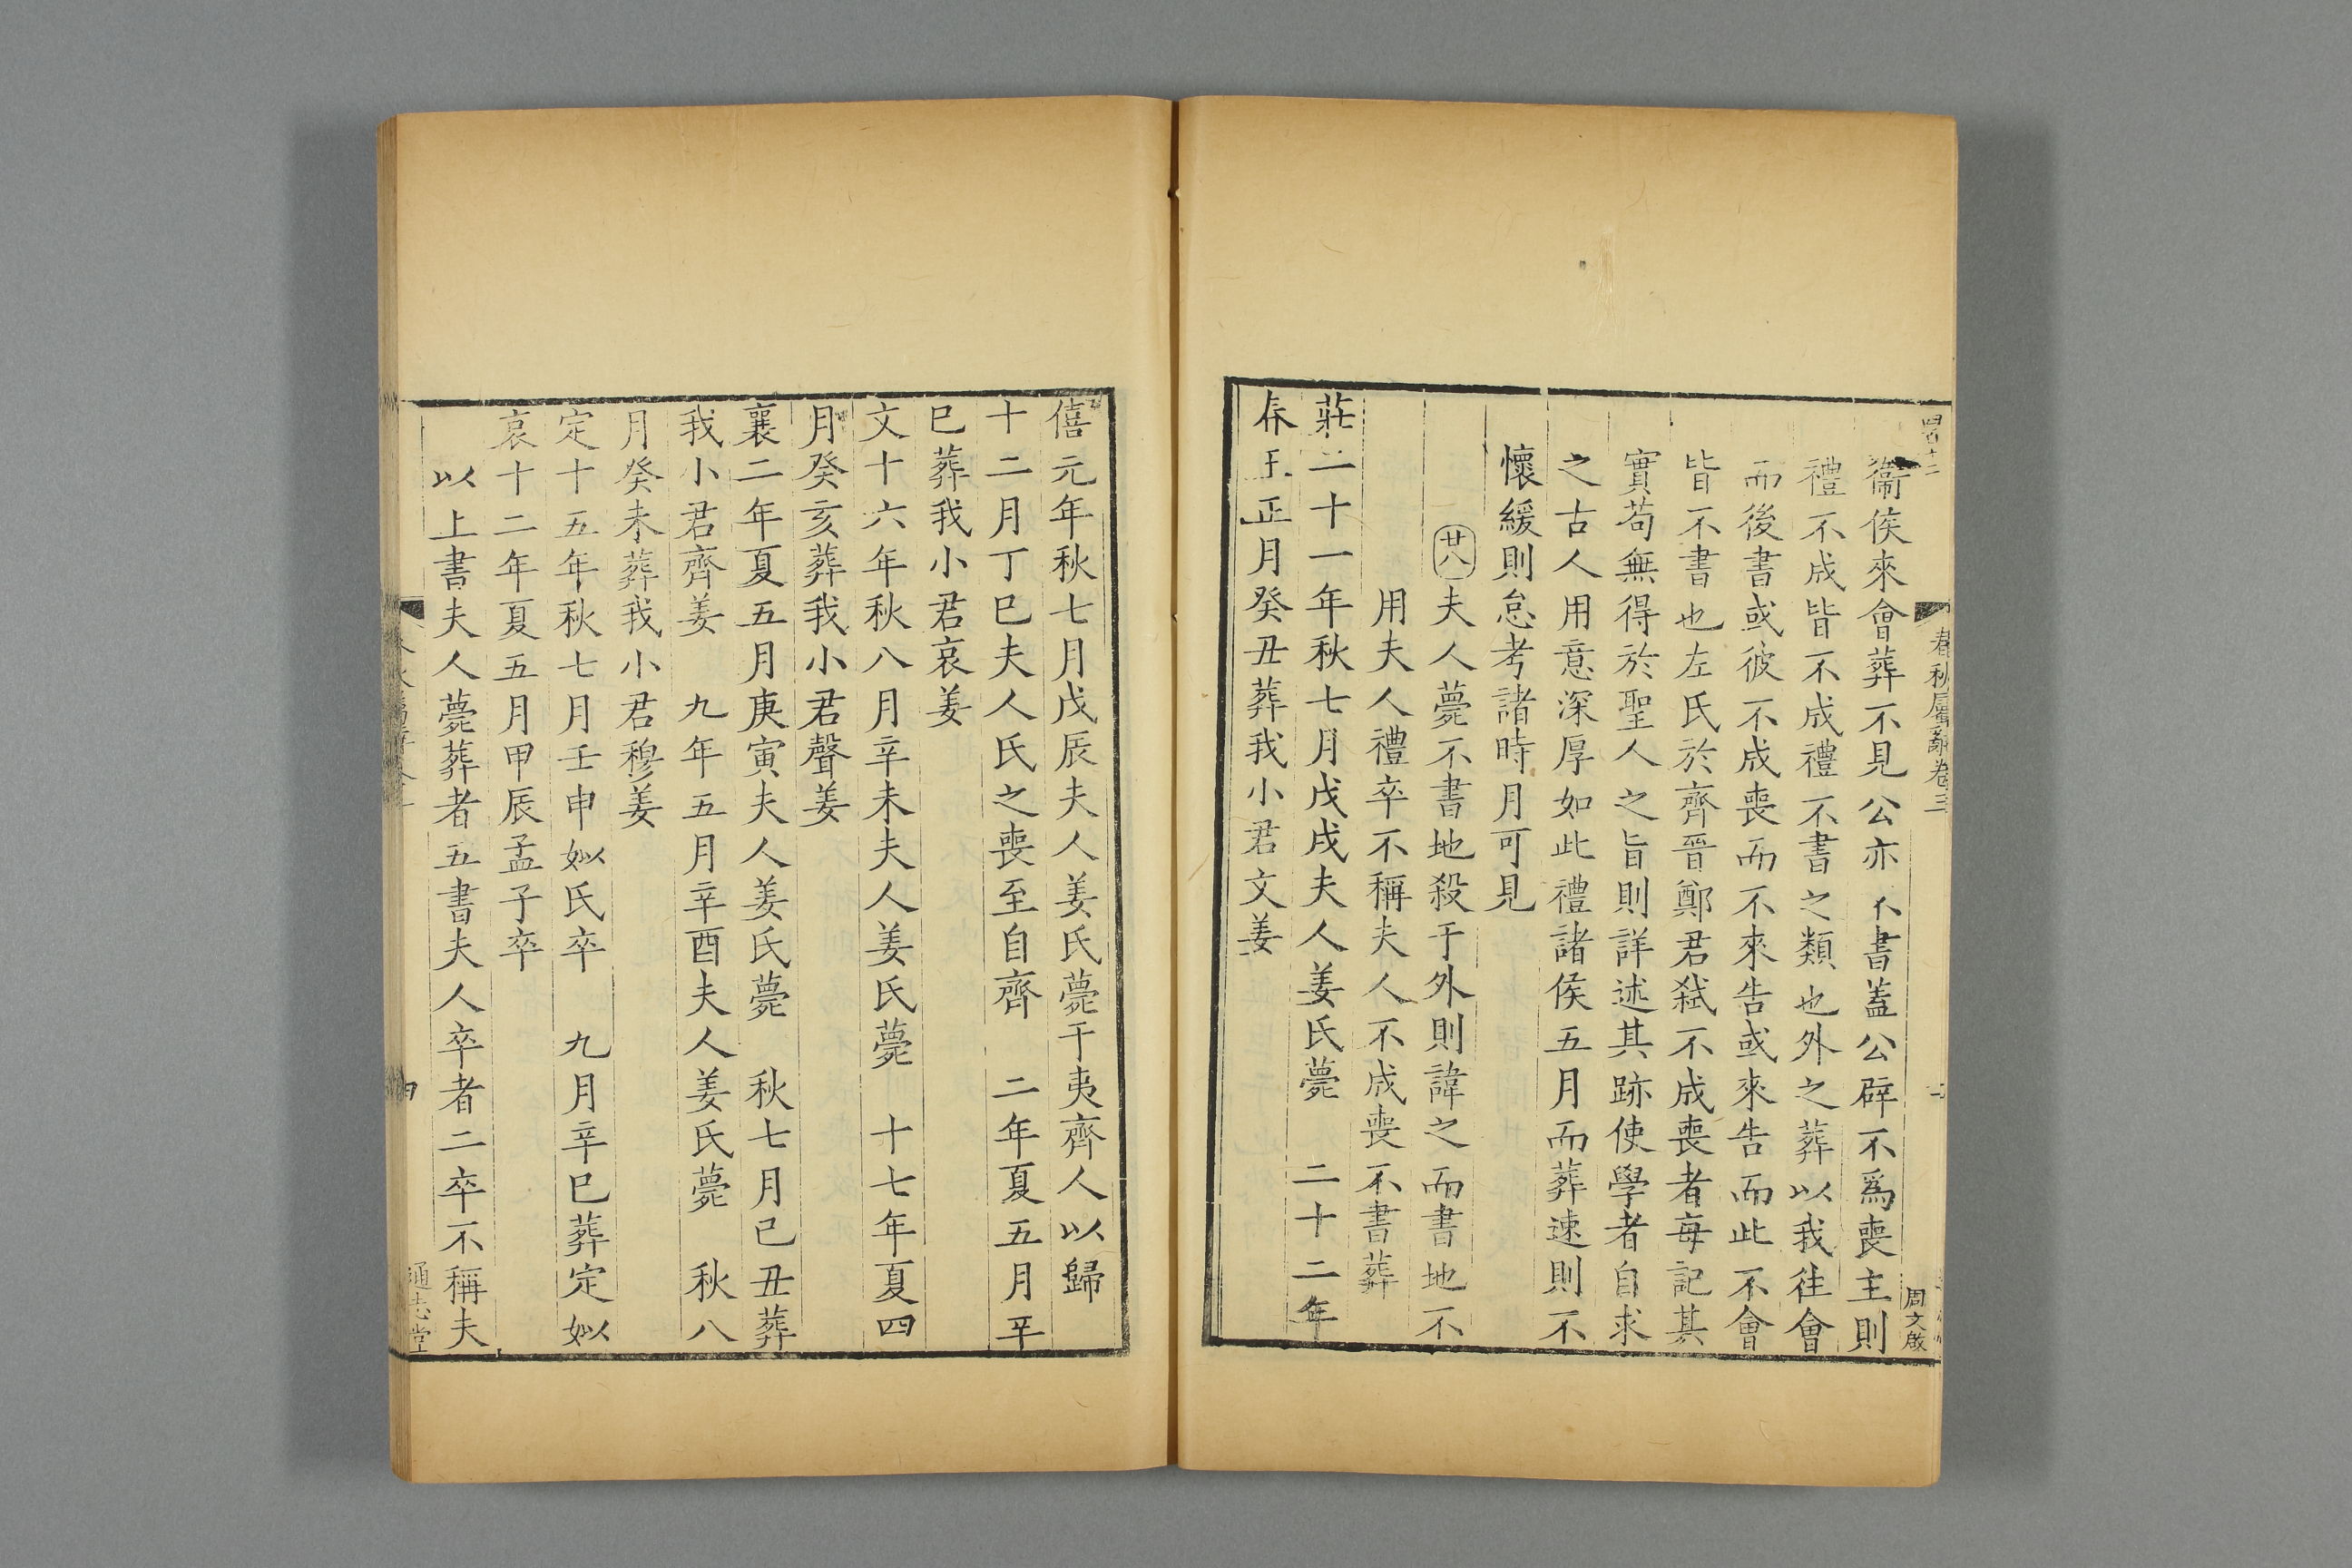 春秋屬辭卷三
周文啟
衞侯來會葬不見公亦不書蓋公辟不爲喪主則
禮不成皆不成禮不書之類也外之葬以我往會
而後書或彼不成喪而不來告或來告而此不會
皆不書也左氏於齊晉鄭君弑不成喪者每記其
實苟無得於聖人之旨則詳述其跡使學者自求
之古人用意深厚如此禮諸侯五月而葬速則不
懷緩則怠考諸時月可見
廿八夫人薨不書地殺于外則諱之而書地不
用夫人禮卒不稱夫人不成喪不書葬
莊二十一年秋七月戊戌夫人姜氏薨 二十二年
春王正月癸丑葬我小君文姜
僖元年秋七月戊辰夫人姜氏薨于夷齊人以歸
十二月丁巳夫人氏之喪至自齊 二年夏五月辛
巳葬我小君哀姜
文十六年秋八月辛未夫人姜氏薨 十七年夏四
月癸亥葬我小君聲姜
襄二年夏五月庚寅夫人姜氏薨 秋七月己丑葬
我小君齊姜 九年五月辛酉夫人姜氏薨 秋八
月癸未葬我小君穆姜
定十五年秋七月壬申姒氏卒 九月辛巳葬定姒
哀十二年夏五月甲辰孟子卒
以上書夫人薨葬者五書夫人卒者二卒不稱夫
通志堂